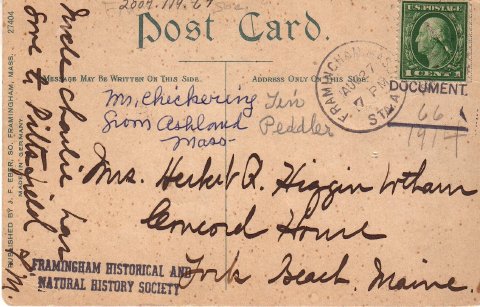 2009.119.67
Post Card.
27404
MESSAGE MAY BE WRITTEN ON THIS SIDE.
ADDRESS ONLY ON THIS SIDE.
FRAMINGHAM
AUG
7 PM
STA
1 CENT 1
DOCUMENT.
Mr. Chickering
from Ashland
Mass.
Tin
Peddler
66
Uncle Charlie has
gone to Pittsfield N.H.
Mrs. Herbert R. Higgin
Concord House
York Beach. Maine.
PUBLISHED BY J. F. EBER. CO. FRAMINGHAM, MASS.
MADE IN GERMANY
FRAMINGHAM HISTORICAL AND
NATURAL HISTORY SOCIETY